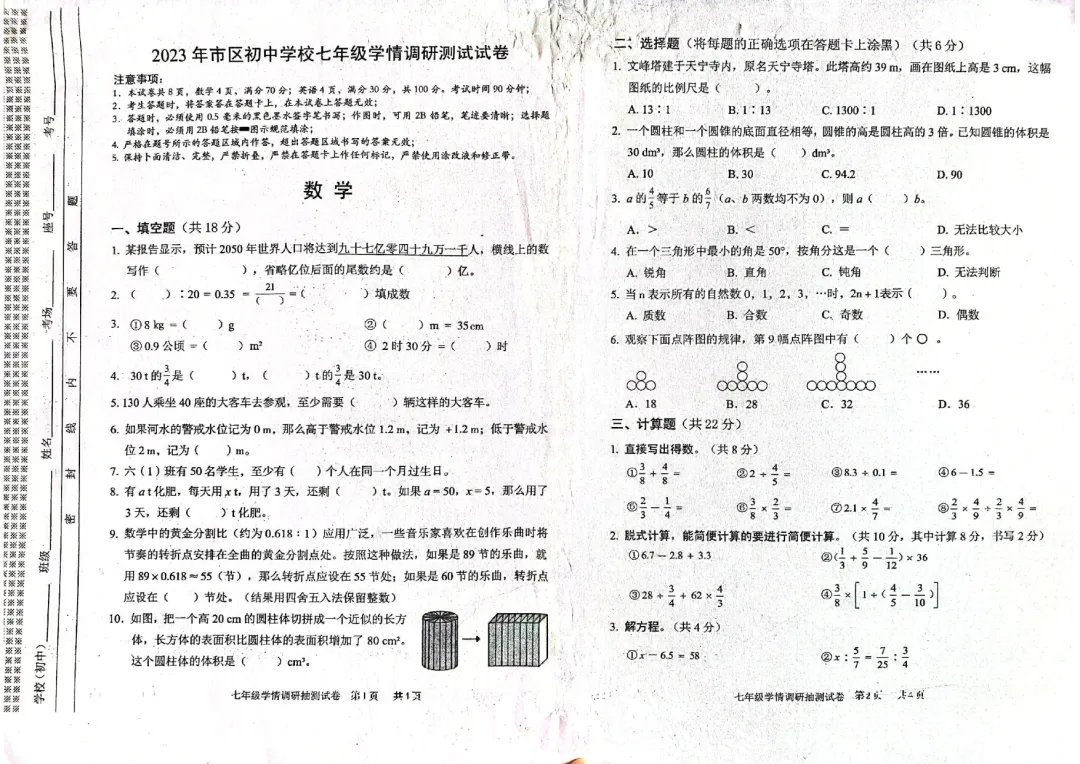 学校(初中)
班级
姓名
考场
座号
考号
密 封 线 内 不 要 答 题
2023 年市区初中学校七年级学情调研测试试卷
注意事项:
1. 本试卷共 8 页,数学 4 页、满分 70 分;英语 4 页、满分 30 分,共 100 分。考试时间 90 分钟;
2. 考生答题时,将答案答在答题卡上,在本试卷上答题无效;
3. 答题时,必须使用 0.5 毫米的黑色墨水签字笔书写;作图时,可用 2B 铅笔,笔迹要清晰;选择题
填涂时,必须用 2B 铅笔按▬图示规范填涂;
4. 严格在题号所示的答题区域内作答,超出答题区域书写的答案无效;
5. 保持卡面清洁、完整,严禁折叠,严禁在答题卡上作任何标记,严禁使用涂改液和修正带。
数 学
一、填空题(共 18 分)
1. 某报告显示,预计 2050 年世界人口将达到九十七亿零四十九万一千人,横线上的数
写作( ),省略亿位后面的尾数约是( )亿。
2. ( ):20 = 0.35 = 21/( ) =( )填成数
3. ①8 kg =( )g ②( )m = 35cm
③0.9 公顷 =( )m² ④ 2 时 30 分 =( )时
4. 30 t 的 3/4 是( )t,( )t 的 3/4 是 30 t。
5. 130 人乘坐 40 座的大客车去参观,至少需要( )辆这样的大客车。
6. 如果河水的警戒水位记为 0 m,那么高于警戒水位 1.2 m,记为 +1.2 m;低于警戒水
位 2 m,记为( )m。
7. 六(1)班有 50 名学生,至少有( )个人在同一个月过生日。
8. 有 a t 化肥,每天用 x t,用了 3 天,还剩( )t。如果 a = 50,x = 5,那么用了
3 天,还剩( )t 化肥。
9. 数学中的黄金分割比(约为 0.618:1)应用广泛,一些音乐家喜欢在创作乐曲时将
节奏的转折点安排在全曲的黄金分割点处。按照这种做法,如果是 89 节的乐曲,就
用 89 × 0.618 ≈ 55(节),那么转折点应设在 55 节处;如果是 60 节的乐曲,转折点
应设在( )节处。(结果用四舍五入法保留整数)
10. 如图,把一个高 20 cm 的圆柱体切拼成一个近似的长方
体,长方体的表面积比圆柱体的表面积增加了 80 cm²。
这个圆柱体的体积是( )cm³。
七年级学情调研抽测试卷 第 1 页 共 4 页
二、选择题(将每题的正确选项在答题卡上涂黑)(共 6 分)
1. 文峰塔建于天宁寺内,原名天宁寺塔。此塔高约 39 m,画在图纸上高是 3 cm,这幅
图纸的比例尺是( )。
A. 13:1 B. 1:13 C. 1300:1 D. 1:1300
2. 一个圆柱和一个圆锥的底面直径相等,圆锥的高是圆柱高的 3 倍。已知圆锥的体积是
30 dm³,那么圆柱的体积是( )dm³。
A. 10 B. 30 C. 94.2 D. 90
3. a 的 4/5 等于 b 的 6/7(a、b 两数均不为 0),则 a( )b。
A. > B. < C. = D. 无法比较大小
4. 在一个三角形中最小的角是 50°,按角分这是一个( )三角形。
A. 锐角 B. 直角 C. 钝角 D. 无法判断
5. 当 n 表示所有的自然数 0,1,2,3,…时,2n + 1表示( )。
A. 质数 B. 合数 C. 奇数 D. 偶数
6. 观察下面点阵图的规律,第 9 幅点阵图中有( )个○。
……
A. 18 B. 28 C. 32 D. 36
三、计算题(共 22 分)
1. 直接写出得数。(共 8 分)
①3/8 + 4/8 = ②2 ÷ 4/5 = ③8.3 ÷ 0.1 = ④6 − 1.5 =
⑤2/3 − 1/4 = ⑥3/8 × 2/3 = ⑦2.1 × 4/7 = ⑧2/3 × 4/9 ÷ 2/3 × 4/9 =
2. 脱式计算,能简便计算的要进行简便计算。(共 10 分,其中计算 8 分,书写 2 分)
①6.7 − 2.8 + 3.3 ②(1/3 + 5/9 − 1/12) × 36
③28 ÷ 3/4 + 62 × 3/4 ④3/8 × [1 ÷ (4/5 − 3/10)]
3. 解方程。(共 4 分)
①x − 6.5 = 58 ②x:5/7 = 7/25:3/4
七年级学情调研抽测试卷 第 2 页 共 4 页